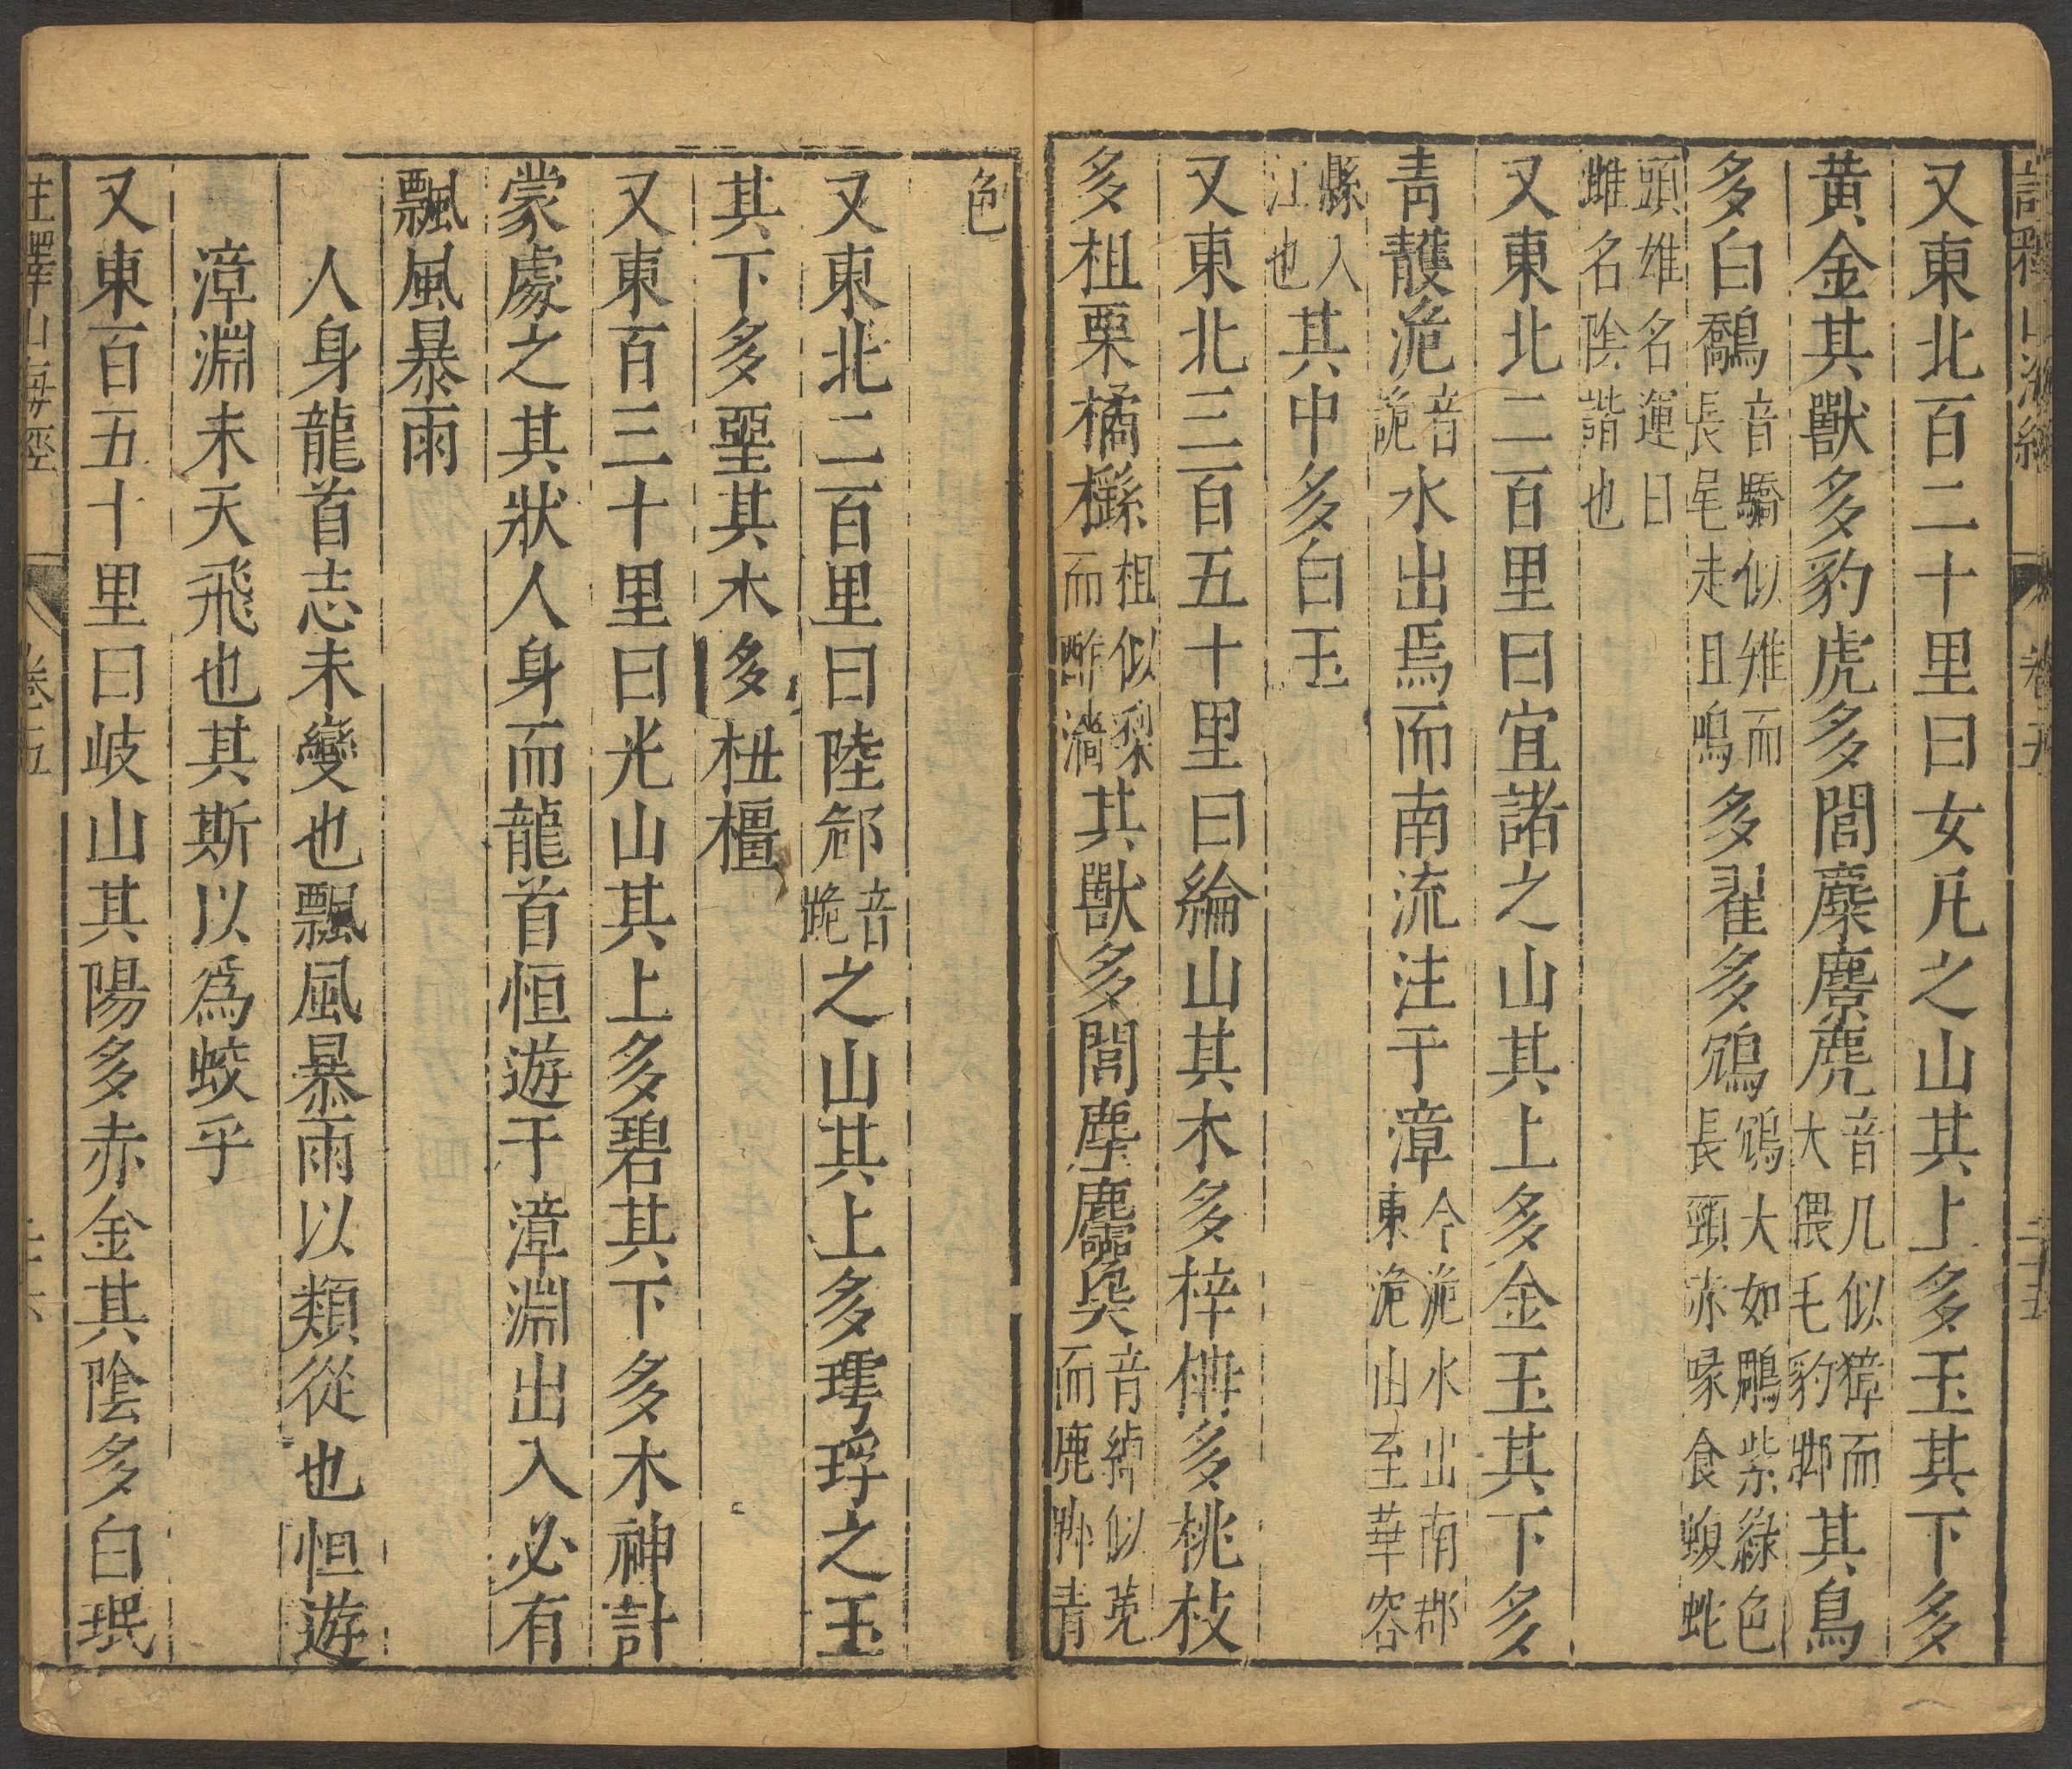 又東北百二十里曰女几之山其上多玉其下多
黃金其獸多豹虎多閭麋麖麂音几似獐而大猥毛豹腳其鳥
多白鷮音驕似雉而長尾走且鳴多翟多鴆鴆大如鵰紫綠色長頸赤喙食蝮蛇
頭雄名運日雌名陰諧也
又東北二百里曰宜諸之山其上多金玉其下多
青雘洈音詭水出焉而南流注于漳今洈水出南郡東洈山至華容
縣入江也其中多白玉
又東北三百五十里曰綸山其木多梓柟多桃枝
多柤栗橘櫾柤似梨而酢濇其獸多閭麈麢㚟音綽似菟而鹿腳青
色
又東北二百里曰陸䣀音跪之山其上多㻬琈之玉
其下多堊其木多杻橿
又東百三十里曰光山其上多碧其下多木神計
蒙處之其狀人身而龍首恒遊于漳淵出入必有
飄風暴雨
人身龍首志未變也飄風暴雨以類從也恒遊
漳淵未天飛也其斯以爲蛟乎
又東百五十里曰岐山其陽多赤金其陰多白珉
註釋山海經
卷五